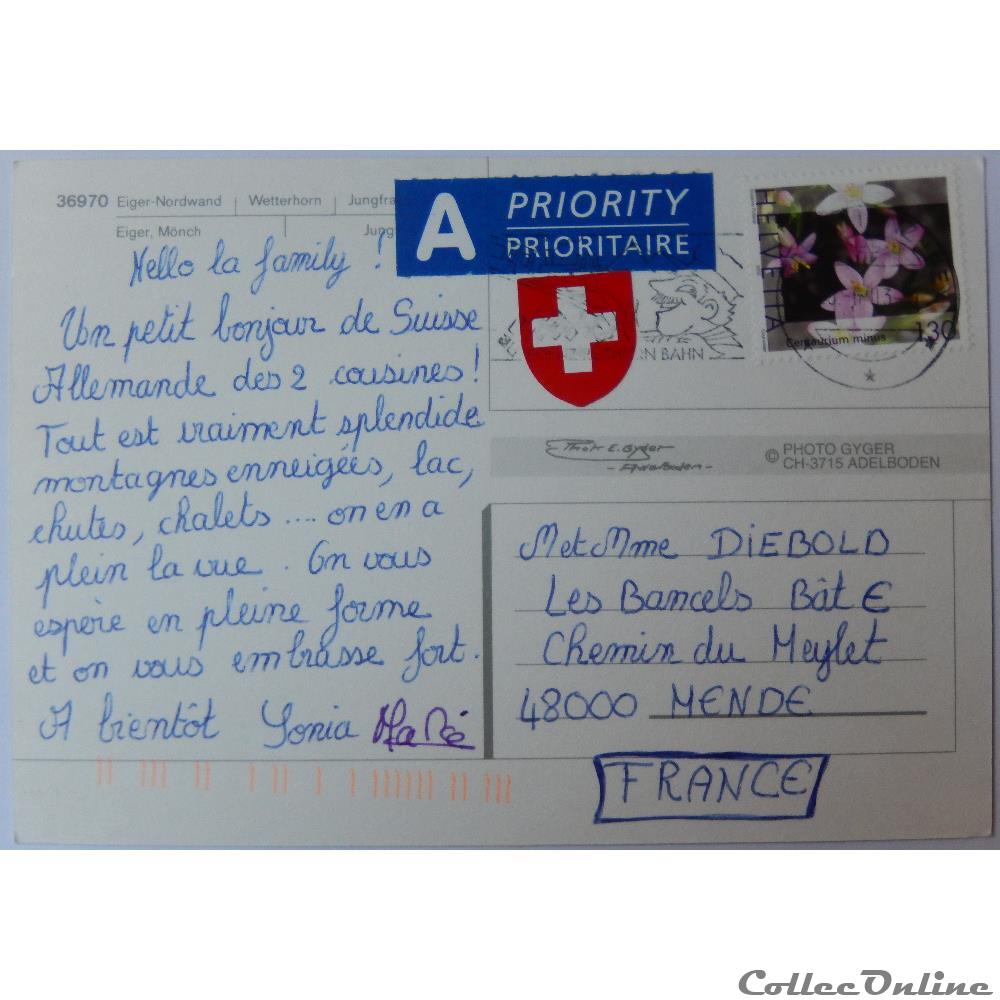 36970 Eiger-Nordwand Wetterhorn
Eiger, Mönch
A PRIORITY
PRIORITAIRE
HELVETIA
Centaurium minus 130
BAHN
Hello la family !
Un petit bonjour de Suisse
Allemande des 2 cousines !
Tout est vraiment splendide
montagnes enneigées, lac,
chutes, chalets .... on en a
plein la vue . On vous
espère en pleine forme
et on vous embrasse fort.
A bientôt Sonia
Thor E. Gyger
- Adelboden -
© PHOTO GYGER
CH-3715 ADELBODEN
M et Mme DIEBOLD
Les Bancels Bât E
Chemin du Meylet
48000 MENDE
FRANCE
CollecOnline